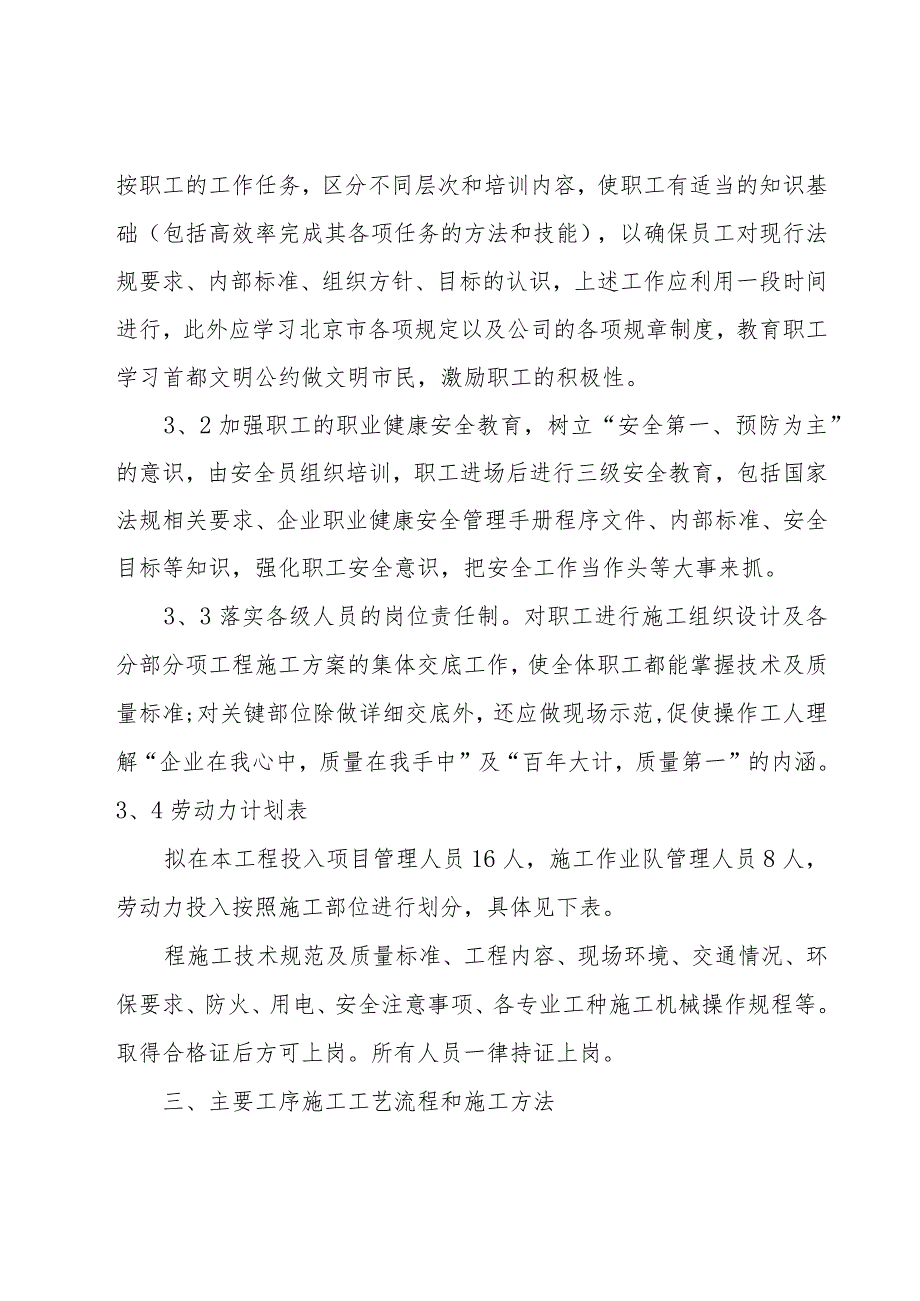 按职工的工作任务，区分不同层次和培训内容，使职工有适当的知识基
础（包括高效率完成其各项任务的方法和技能），以确保员工对现行法
规要求、内部标准、组织方针、目标的认识，上述工作应利用一段时间
进行，此外应学习北京市各项规定以及公司的各项规章制度，教育职工
学习首都文明公约做文明市民，激励职工的积极性。
3、2加强职工的职业健康安全教育，树立“安全第一、预防为主”
的意识，由安全员组织培训，职工进场后进行三级安全教育，包括国家
法规相关要求、企业职业健康安全管理手册程序文件、内部标准、安全
目标等知识，强化职工安全意识，把安全工作当作头等大事来抓。
3、3落实各级人员的岗位责任制。对职工进行施工组织设计及各
分部分项工程施工方案的集体交底工作，使全体职工都能掌握技术及质
量标准;对关键部位除做详细交底外，还应做现场示范,促使操作工人理
解“企业在我心中，质量在我手中”及“百年大计，质量第一”的内涵。
3、4劳动力计划表
拟在本工程投入项目管理人员16人，施工作业队管理人员8人，
劳动力投入按照施工部位进行划分，具体见下表。
程施工技术规范及质量标准、工程内容、现场环境、交通情况、环
保要求、防火、用电、安全注意事项、各专业工种施工机械操作规程等。
取得合格证后方可上岗。所有人员一律持证上岗。
三、主要工序施工工艺流程和施工方法